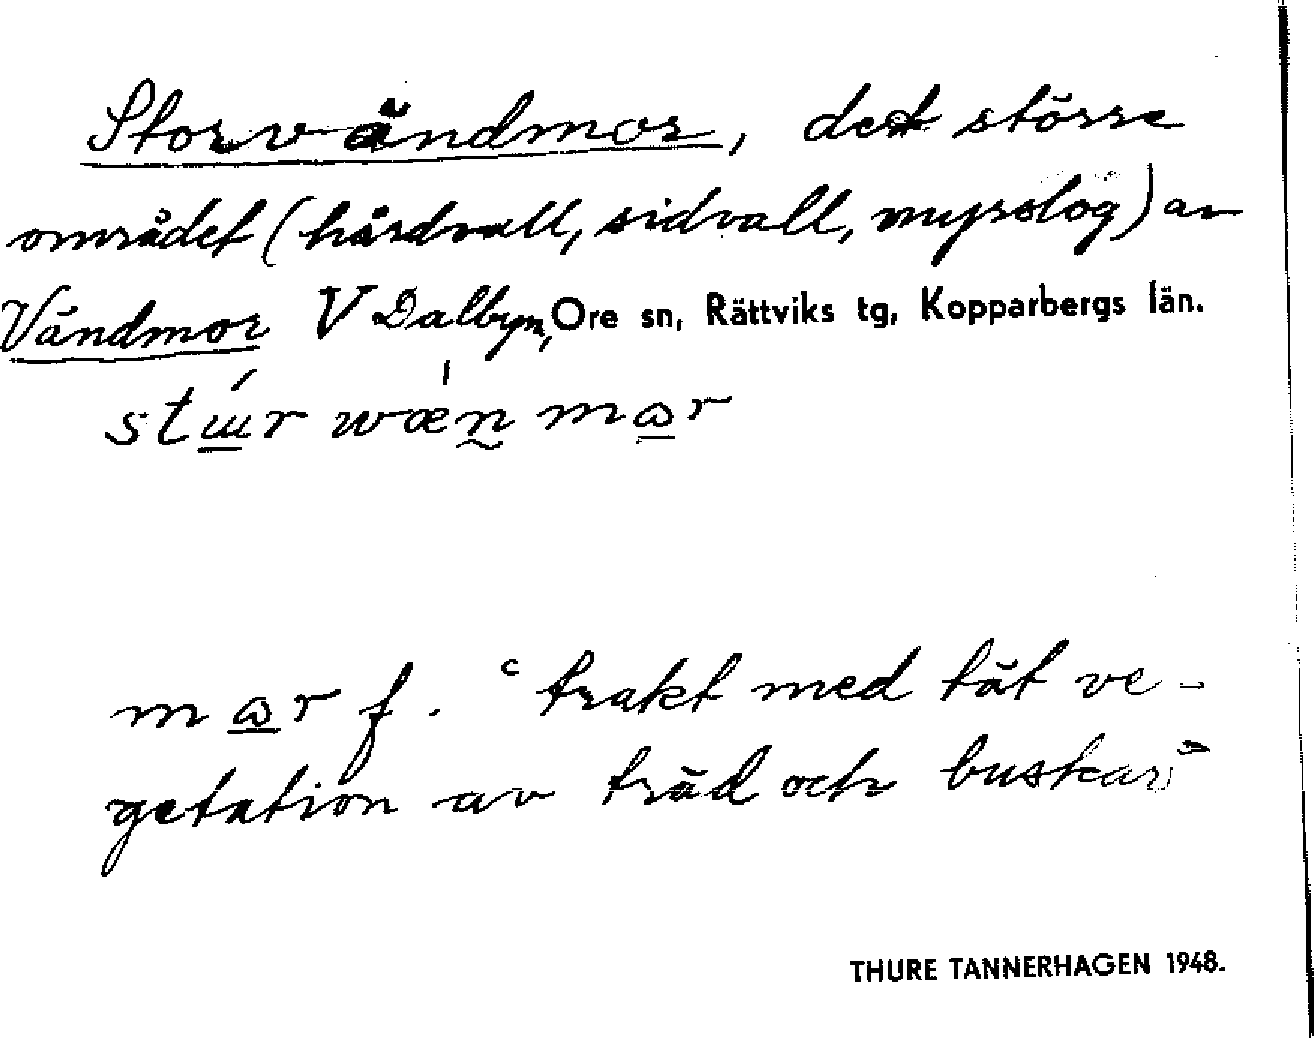 Storvändmor, det större
området (hårdvall, sidvall, myrslög) av
Vändmor V Dalbyn, Ore sn, Rättviks tg, Kopparbergs län.
mar f. "trakt med tät ve-
getation av träd och buskar"
THURE TANNERHAGEN 1948.